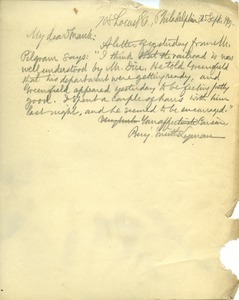 708 Locust St., Philadelphia, 25 Sept. 190
My dear Frank:
A letter of yesterday from Mr.
Pilgram says: "I think that the railroad is now
well understood by Mr. He told Greenfield
that his department were getting ready, and
Greenfield appeared yesterday to be feeling pretty
good. I spent a couple of hours with him
last night, and he seemed to be encouraged."
Your affectionate Cousin
Benj. Smith Lyman.